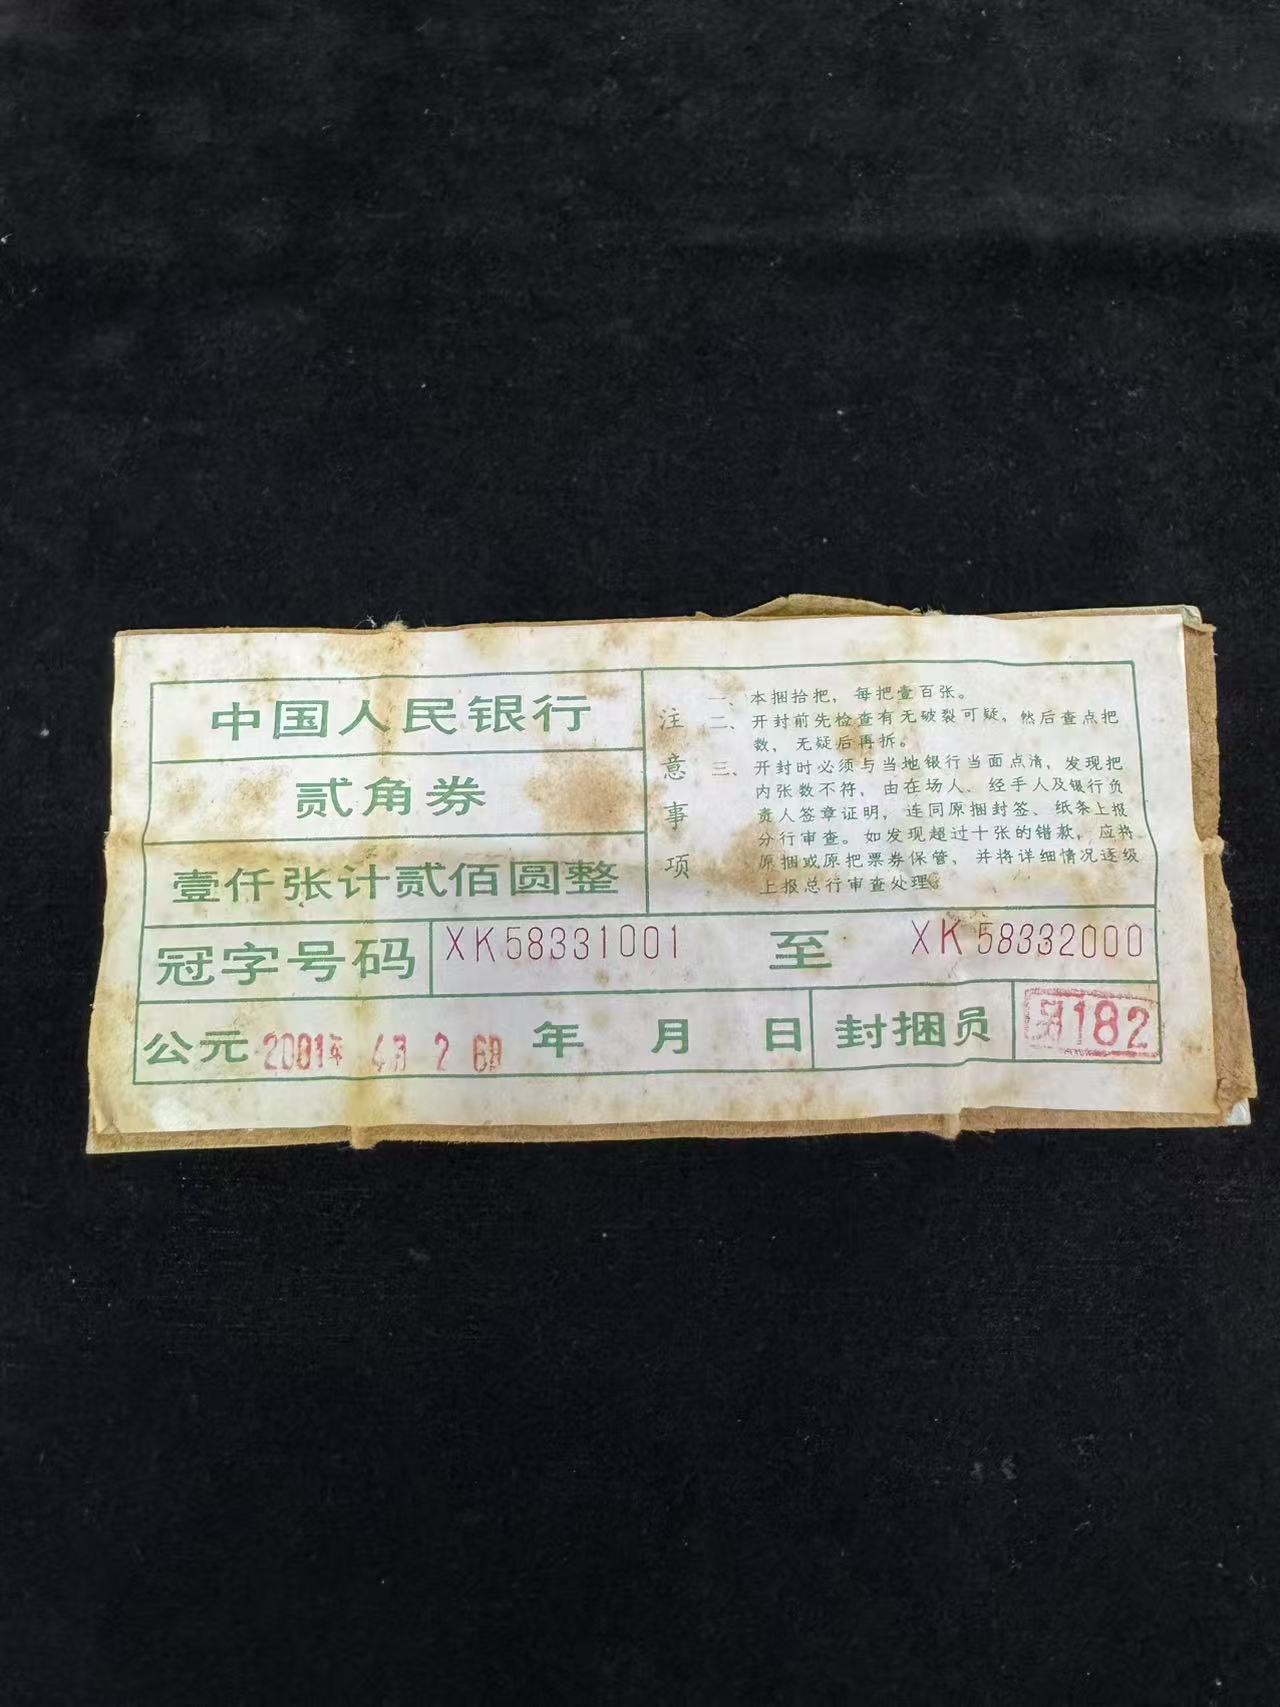 中国人民银行
贰角券
壹仟张计贰佰圆整
注意事项
一、本捆拾把，每把壹百张。
二、开封前先检查有无破裂可疑，然后查点把
数，无疑后再拆。
三、开封时必须与当地银行当面点清，发现把
内张数不符，由在场人、经手人及银行负
责人签章证明，连同原捆封签、纸条上报
分行审查。如发现超过十张的错款，应将
原捆或原把票券保管，并将详细情况逐级
上报总行审查处理。
冠字号码 XK58331001 至 XK58332000
公元 2001年 4月 26日 年 月 日 封捆员 182